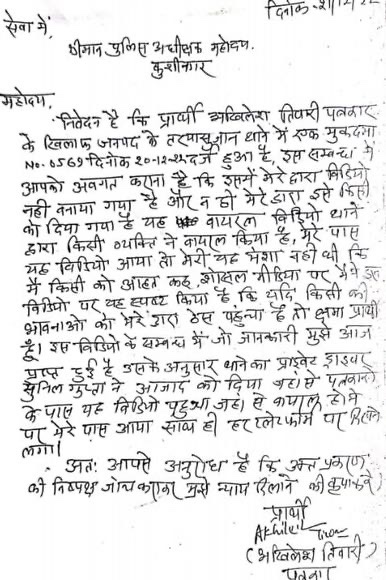 दिनांक-21/12/22
सेवा में,
श्रीमान पुलिस अधीक्षक महोदय,
कुशीनगर
महोदय,
निवेदन है कि प्रार्थी अखिलेश तिवारी पत्रकार
के खिलाफ जनपद के तरयासुजान थाने में एक मुकदमा
No. 0569 दिनांक 20-12-22 दर्ज हुआ है, इस सम्बन्ध में
आपको अवगत कराना है कि इसमें मेरे द्वारा विडियो
नही बनाया गया है और न ही मेरे द्वारा इसे किसी
को दिया गया है यह वायरल विडियो थाने
द्वारा किसी व्यक्ति ने वायरल किया है, मेरे पास
यह विडियो आया तो मेरी यह मंशा नही थी कि
मैं किसी को आहत करू, शोसल मीडिया पर मैंने इस
विडियो पर यह स्पष्ट किया है, कि यदि किसी की
भावनाओं को मेरे द्वारा ठेस पहुचा है तो क्षमा प्रार्थी
हूँ। इस विडियो के सम्बन्ध में जो जानकारी मुझे आज
प्राप्त हुई है उसके अनुसार थाने का प्राइवेट ड्राइवर
सुनिल गुप्ता ने आजाद को दिया वहा से पत्रकारो
के पास यह विडियो पहुचा जहां से वायरल होने
पर मेरे पास आया साथ ही हर प्लेटफार्म पर दिखने
लगा।
अतः आपसे अनुरोध है कि उक्त प्रकरण
की निष्पक्ष जांच कराकर मुझे न्याय दिलाने की कृपा करें।
प्रार्थी
Akhilesh
(अखिलेश तिवारी)
पत्रकार